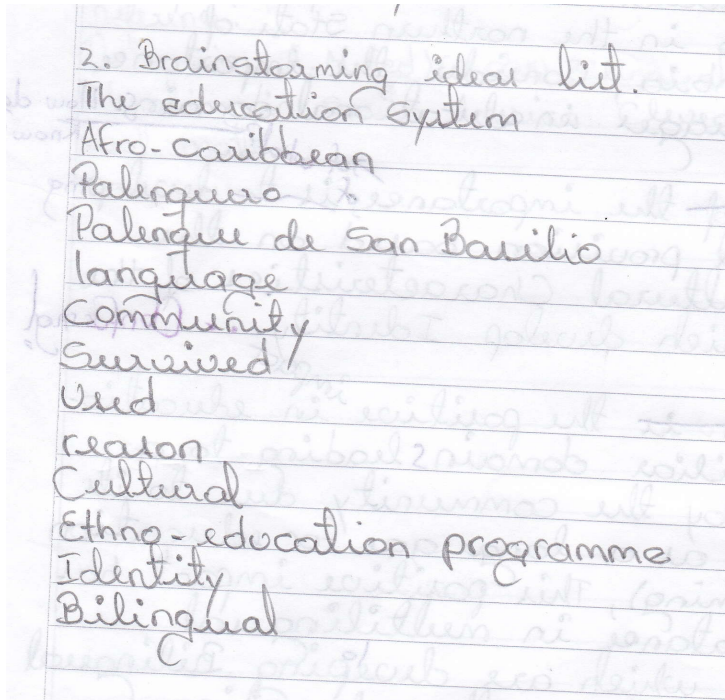 2. Brainstorming ideas list.
The education system
Afro-Caribbean
Palenquero
Palenque de San Basilio
language
Community
Survived
Used
reason
Cultural
Ethno-education programme
Identity
Bilingual